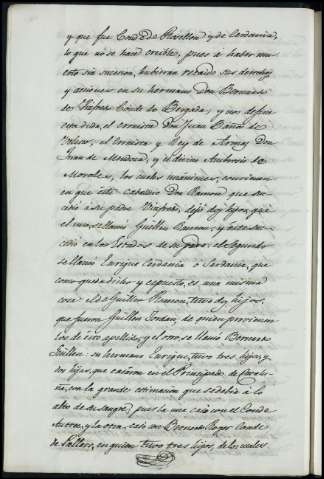 y que fue Conde de Rosellon y de Cerdania,
lo que no se hace creible, pues á haber mu-
erto sin sucesion, hubieran recaido sus derechos
y acciones en su hermano Don Bernardo
de Conde de y nos
el coronista Don Juan Baños de
Velasco, el Coronista y Rey de Armas Don
Juan de Mendoza, y el divino Ambrosio de
Morales, los cuales unánimes, convienen
en que este Caballero Don Ramon que su-
cedio á su padre dejó dos hijos, que
el uno se llamó Guillen Ramon, y este su-
cedio en los Estados de su padre: el segundo
se llamó Enrique Cerdania ó Sardania, que
como queda dicho y expuesto, es una misma
cosa: el Guillen Ramon, tuvo dos hijos,
que fueron Guillen Jordan, de quien provienen
los de este apellido, y el otro, se llamó Bernardo
Guillen: su hermano Enrique, tuvo tres hijos, y
dos hijas, que casaron en el Principado de Catalu-
ña, con la grande estimacion que se debia á lo
alto de su sangre, pues la una casó con el Conde
y la otra, casó con Roger Conde
de Pallars, en quien tuvo tres hijos, de los cuales